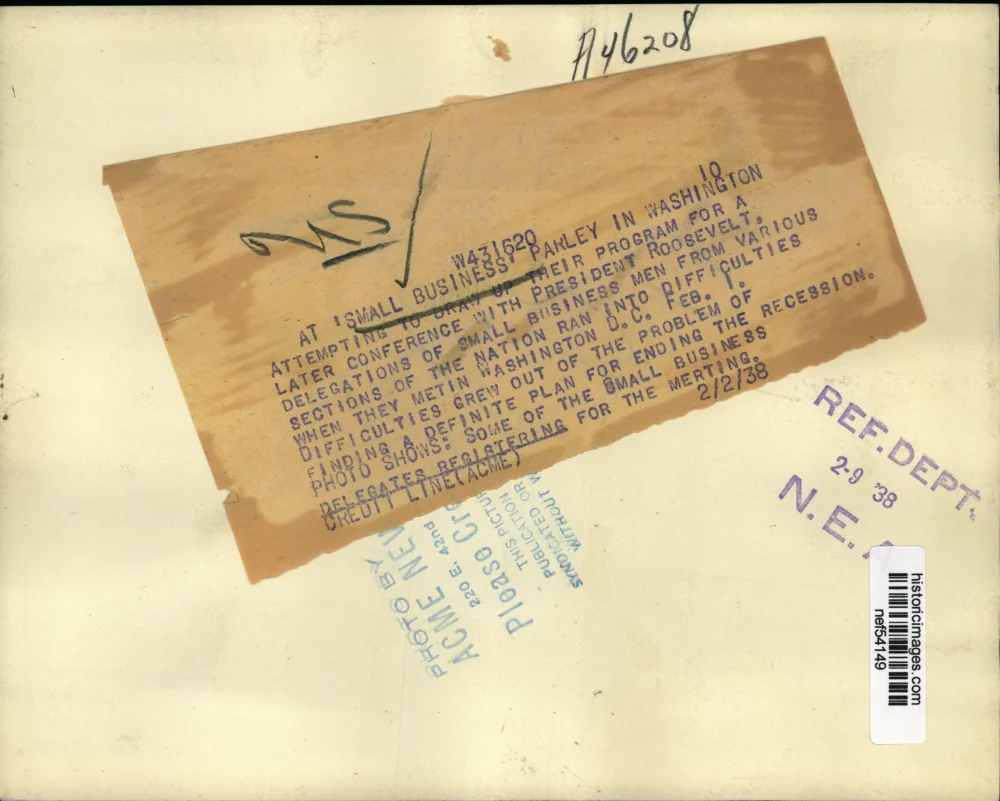 A46208
MS
10
W431620
AT 'SMALL BUSINESS' PARLEY IN WASHINGTON
ATTEMPTING TO DRAW UP THEIR PROGRAM FOR A
LATER CONFERENCE WITH PRESIDENT ROOSEVELT,
DELEGATIONS OF SMALL BUSINESS MEN FROM VARIOUS
SECTIONS OF THE NATION RAN INTO DIFFICULTIES
WHEN THEY METIN WASHINGTON D.C. FEB. 1.
DIFFICULTIES GREW OUT OF THE PROBLEM OF
FINDING A DEFINITE PLAN FOR ENDING THE RECESSION.
PHOTO SHOWS: SOME OF THE SMALL BUSINESS
DELEGATES REGISTERING FOR THE MERTING.
CREDIT LINE(ACME) 2/2/38
PHOTO BY
ACME NEW
220 E. 42nd
Please Cre
THIS PICTUR
PUBLICATION OR
SYNDICATED
WITHOUT W
REF.DEPT.
2-9 '38
N.E.A
historicimages.com
nef54149